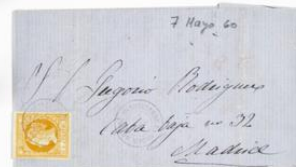 7 Mayo 60
Gregorio Rodriguez
Caba baja no 32
Madrid